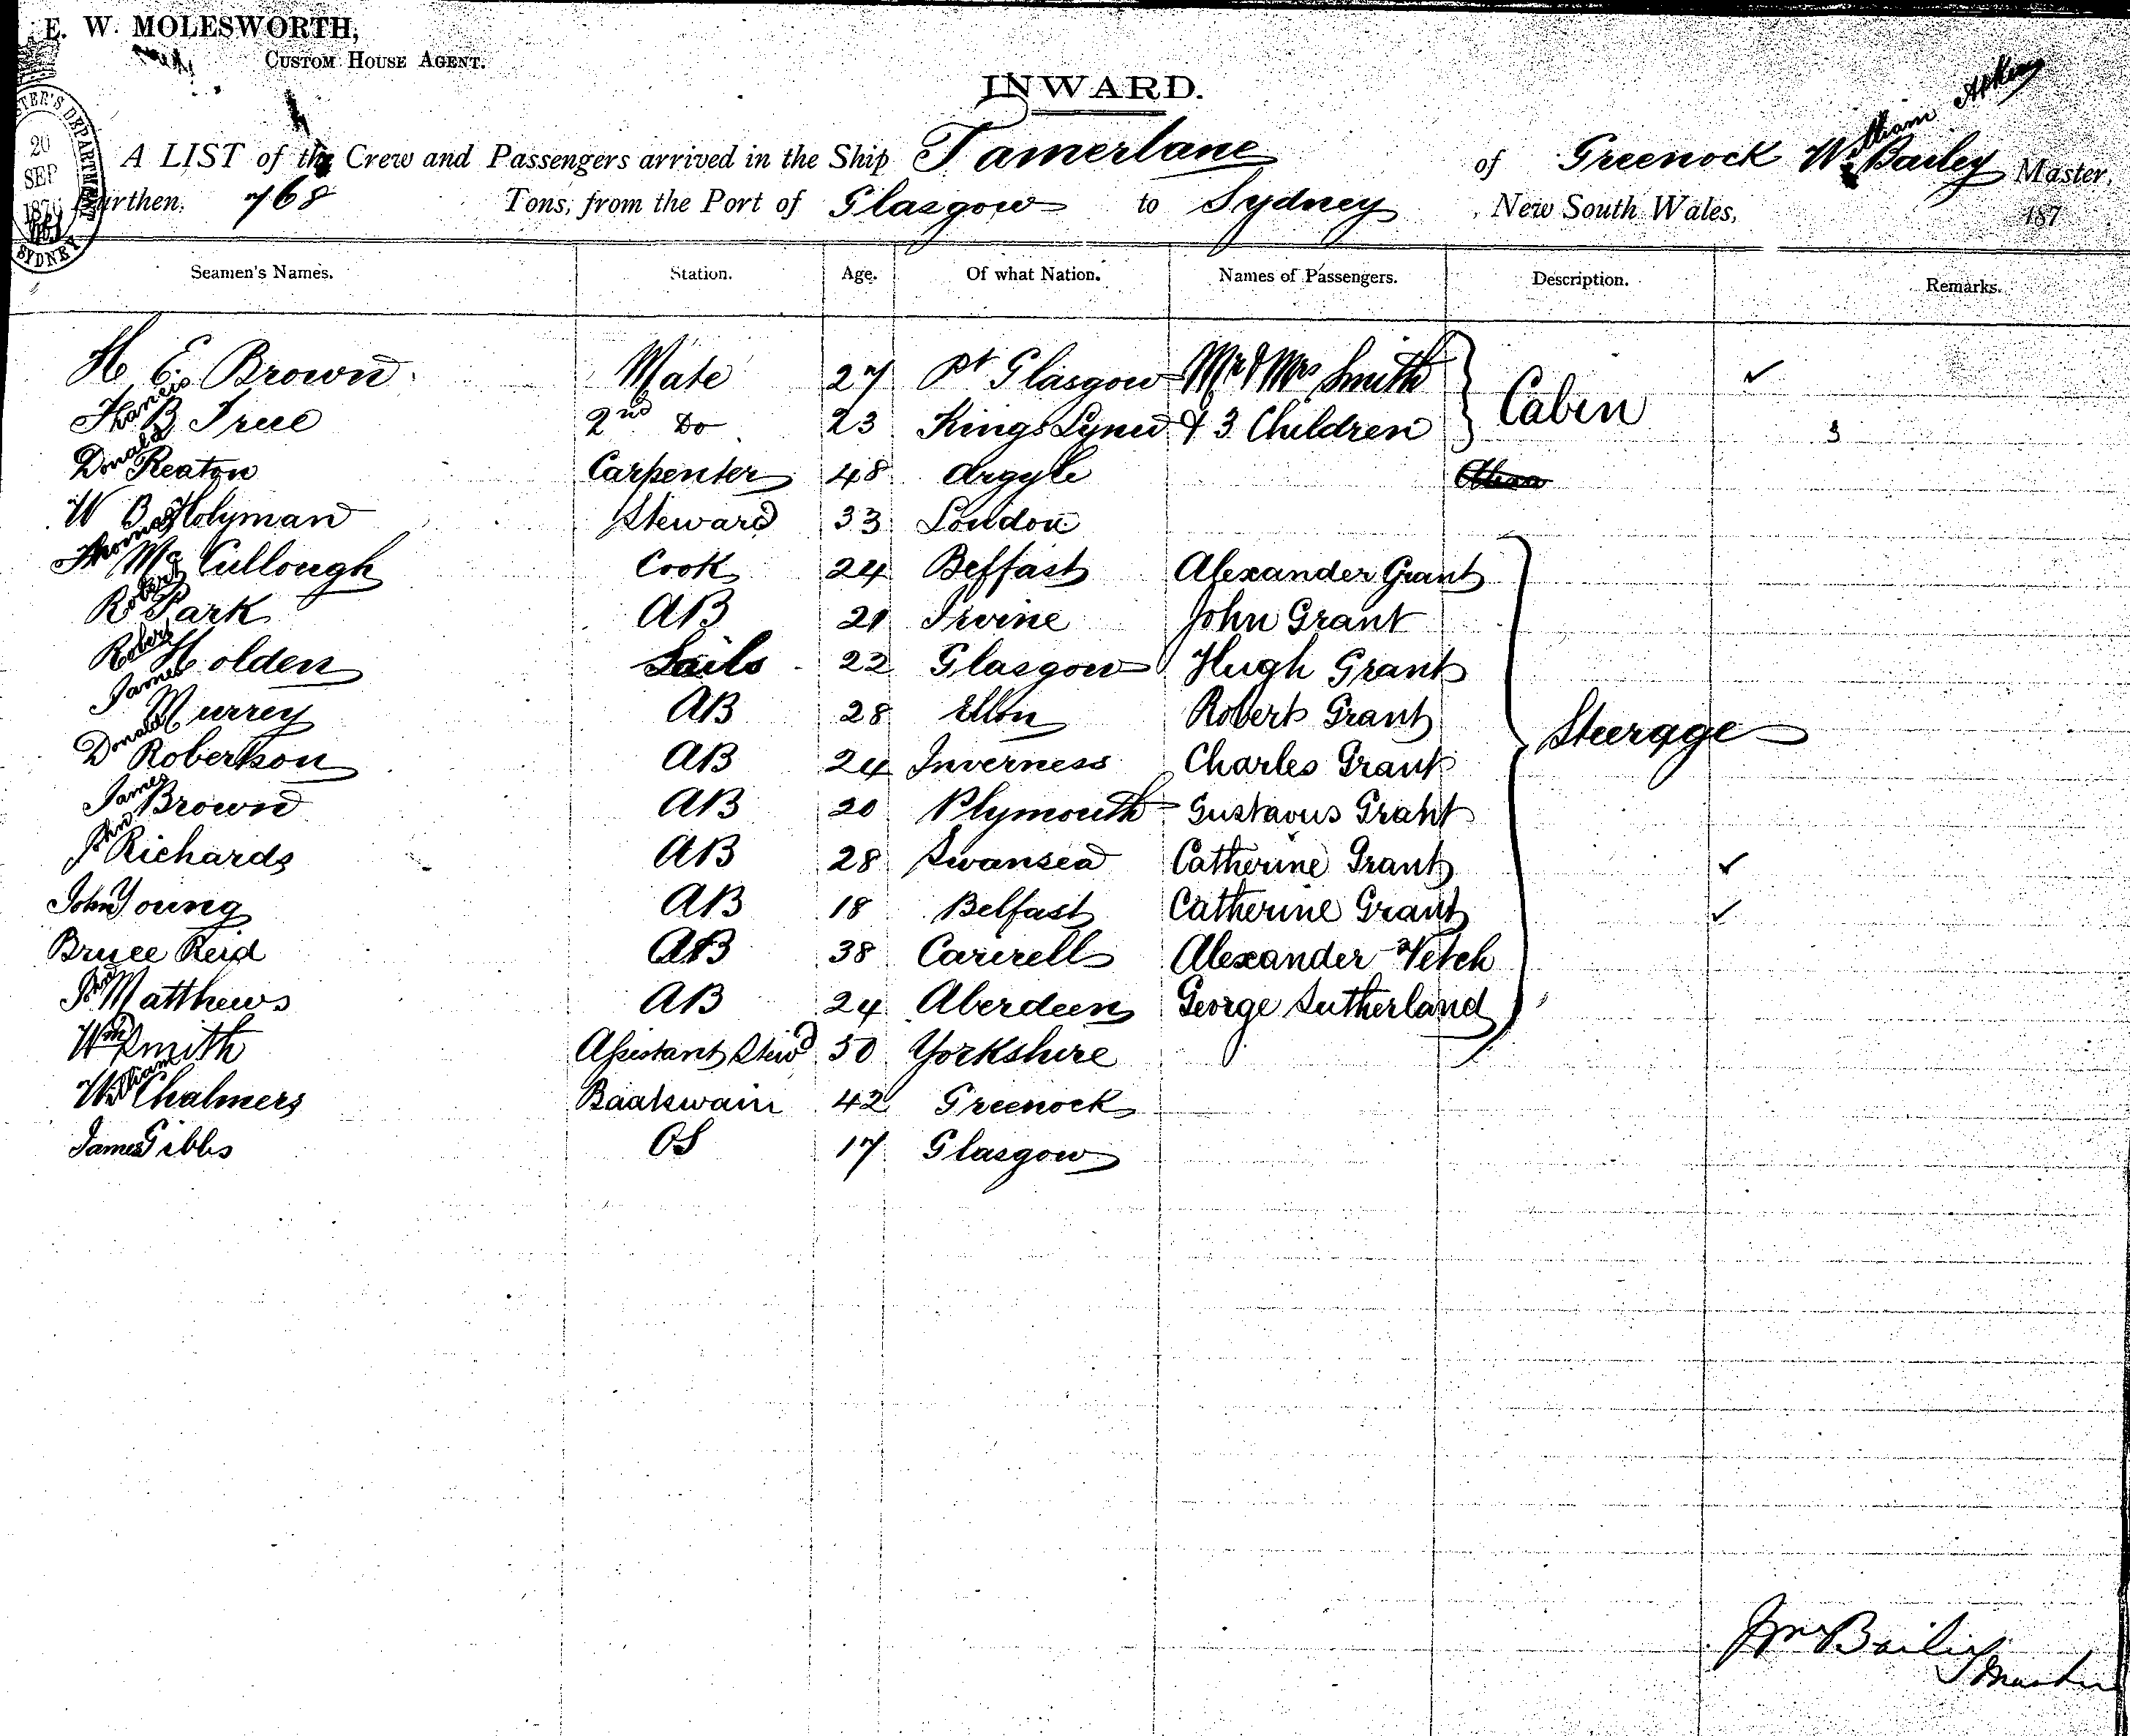 E. W. MOLESWORTH,
CUSTOM HOUSE AGENT.
INWARD.
20
SEP
SYDNEY
A LIST of the Crew and Passengers arrived in the Ship Tamerlane of Greenock Wm Bailey Master,
Burthen, 768 Tons, from the Port of Glasgow to Sydney New South Wales, 187
Seamen's Names. Station. Age. Of what Nation. Names of Passengers. Description. Remarks.
H E Brown Mate 27 Pt Glasgow Mr & Mrs Smith Cabin
B True 2nd Do 23 Kings Lynn & 3 Children 3
Donald Reaton Carpenter 48 Argyle
W B Holyman Steward 33 London
Thomas Mc Cullough Cook 24 Belfast Alexander Grant
Robert Park AB 21 Irvine John Grant
Robert Holden Sails 22 Glasgow Hugh Grant
James Murrey AB 28 Ellon Robert Grant
Donald Robertson AB 24 Inverness Charles Grant Steerage
James Brown AB 20 Plymouth Gustavus Grant
John Richards AB 28 Swansea Catherine Grant
John Young AB 18 Belfast Catherine Grant
Bruce Reid AB 38 Alexander Vetch
Jno Matthews AB 24 Aberdeen George Sutherland
Wm Smith Assistant Stewd 50 Yorkshire
William Chalmers Baatswain 42 Greenock
James Gibbs OS 17 Glasgow
Bailey
Master